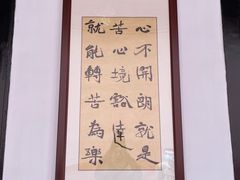 心不開朗就是
苦心境豁達
就能轉苦為樂